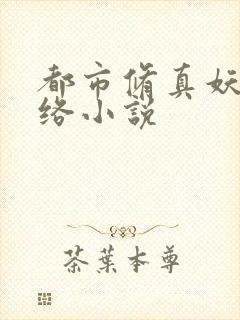 都市脩真妖
络小說
茶葉本尊